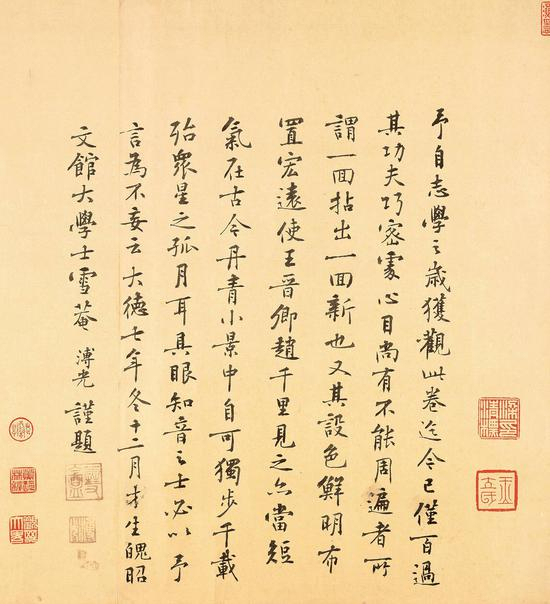 予自志學之歳獲觀此卷迄今已僅百過
其功夫巧密處心目尚有不能周遍者所
謂一面拈出一面新也又其設色鮮明布
置宏遠使王晉卿趙千里見之亦當短
氣在古今丹青小景中自可獨步千載
殆衆星之孤月耳具眼知音之士必以予
言為不妄云大德七年冬十二月才生魄昭
文館大學士雪菴溥光謹題